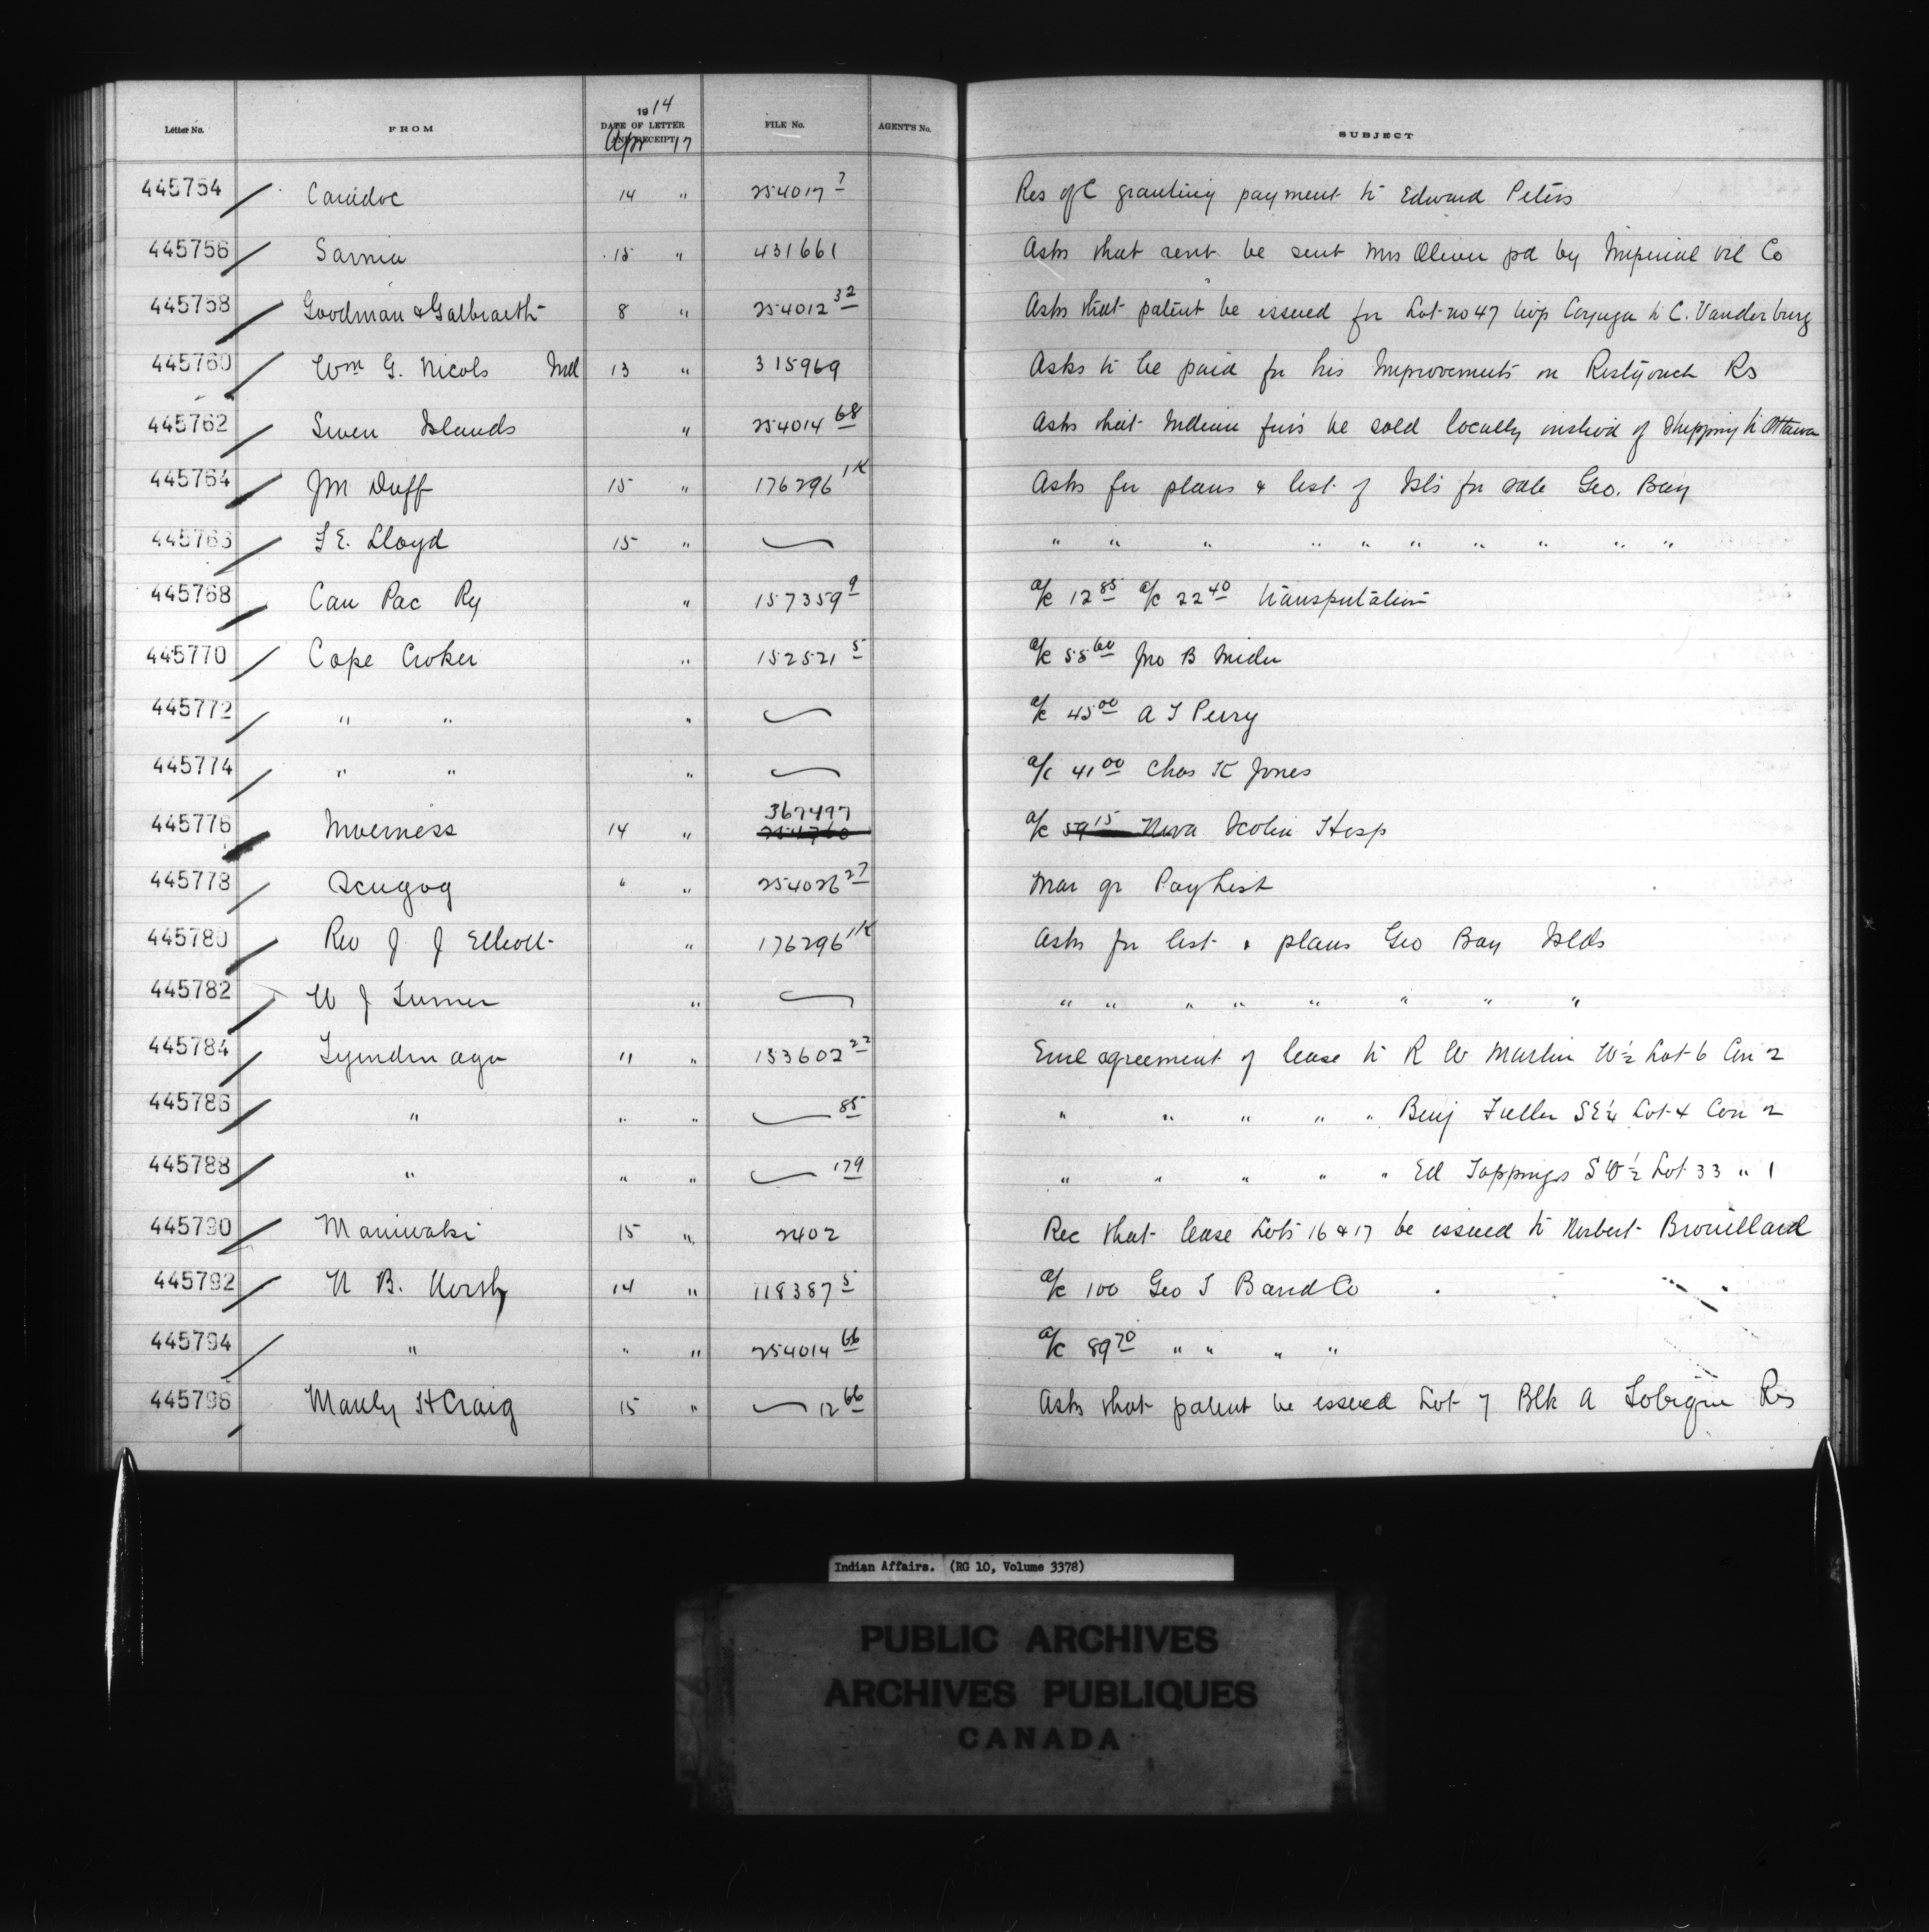 Letter No. FROM 1914 DATE OF LETTER AND RECEIPT Apr 17 FILE No. AGENT'S No. SUBJECT
445754 Caradoc 14 " 254017 7 Res of C granting payment to Edward Peters
445756 Sarnia 15 " 431661 Asks that rent be sent Mrs Oliver pd by Imperial Oil Co
445758 Goodman & Galbraith 8 " 254012 32 Asks that patent be issued for Lot no 47 twp Cayuga to C. Vanderburg
445760 Wm G. Nicols 13 " 315969 Asks to be paid for his Improvements on Restigouch Rs
445762 Seven Islands " 254014 68 Asks that Indian furs be sold locally instead of Shipping to Ottawa
445764 JM Duff 15 " 176296 1K Asks for plans & list of Isls for sale Geo. Bay
445766 E. Lloyd 15 " " " " " " " " " " "
445768 Can Pac Ry " 157359 9 a/c 12 85 a/c 22 40 transportation
445770 Cape Croker " 152521 5 a/c 55 60 Jno B
445772 " " " a/c 45 00 A Perry
445774 " " " a/c 41 00 Chas K Jones
445776 Inverness 14 " 367497 a/c 59 15 Nova Scotia Hosp
445778 Scugog " " 254026 27 Mar qr Pay List
445780 Rev J J Elliott " 176296 1K Asks for list & plans Geo Bay Islds
445782 W J Turner " " " " " " " " "
445784 Tyendinaga " " 153602 22 Encl agreement of lease to R W Martin W½ Lot 6 Con 2
445786 " " " 85 " " " " " Benj Fuller SE¼ Lot 4 Con 2
445788 " " " 179 " " " " " Ed Toppings SW½ Lot 33 " 1
445790 Maniwaki 15 " 2402 Rec that lease Lots 16 & 17 be issued to Norbert Brouillard
445792 N B. 14 " 118387 5 a/c 100 Geo
445794 " " " 254014 66 a/c 89 70 " " " "
445796 Manly H Craig 15 " 12 66 Asks that patent be issued Lot 7 Blk A Tobique Rs
Indian Affairs. (RG 10, Volume 3378)
PUBLIC ARCHIVES
ARCHIVES PUBLIQUES
CANADA